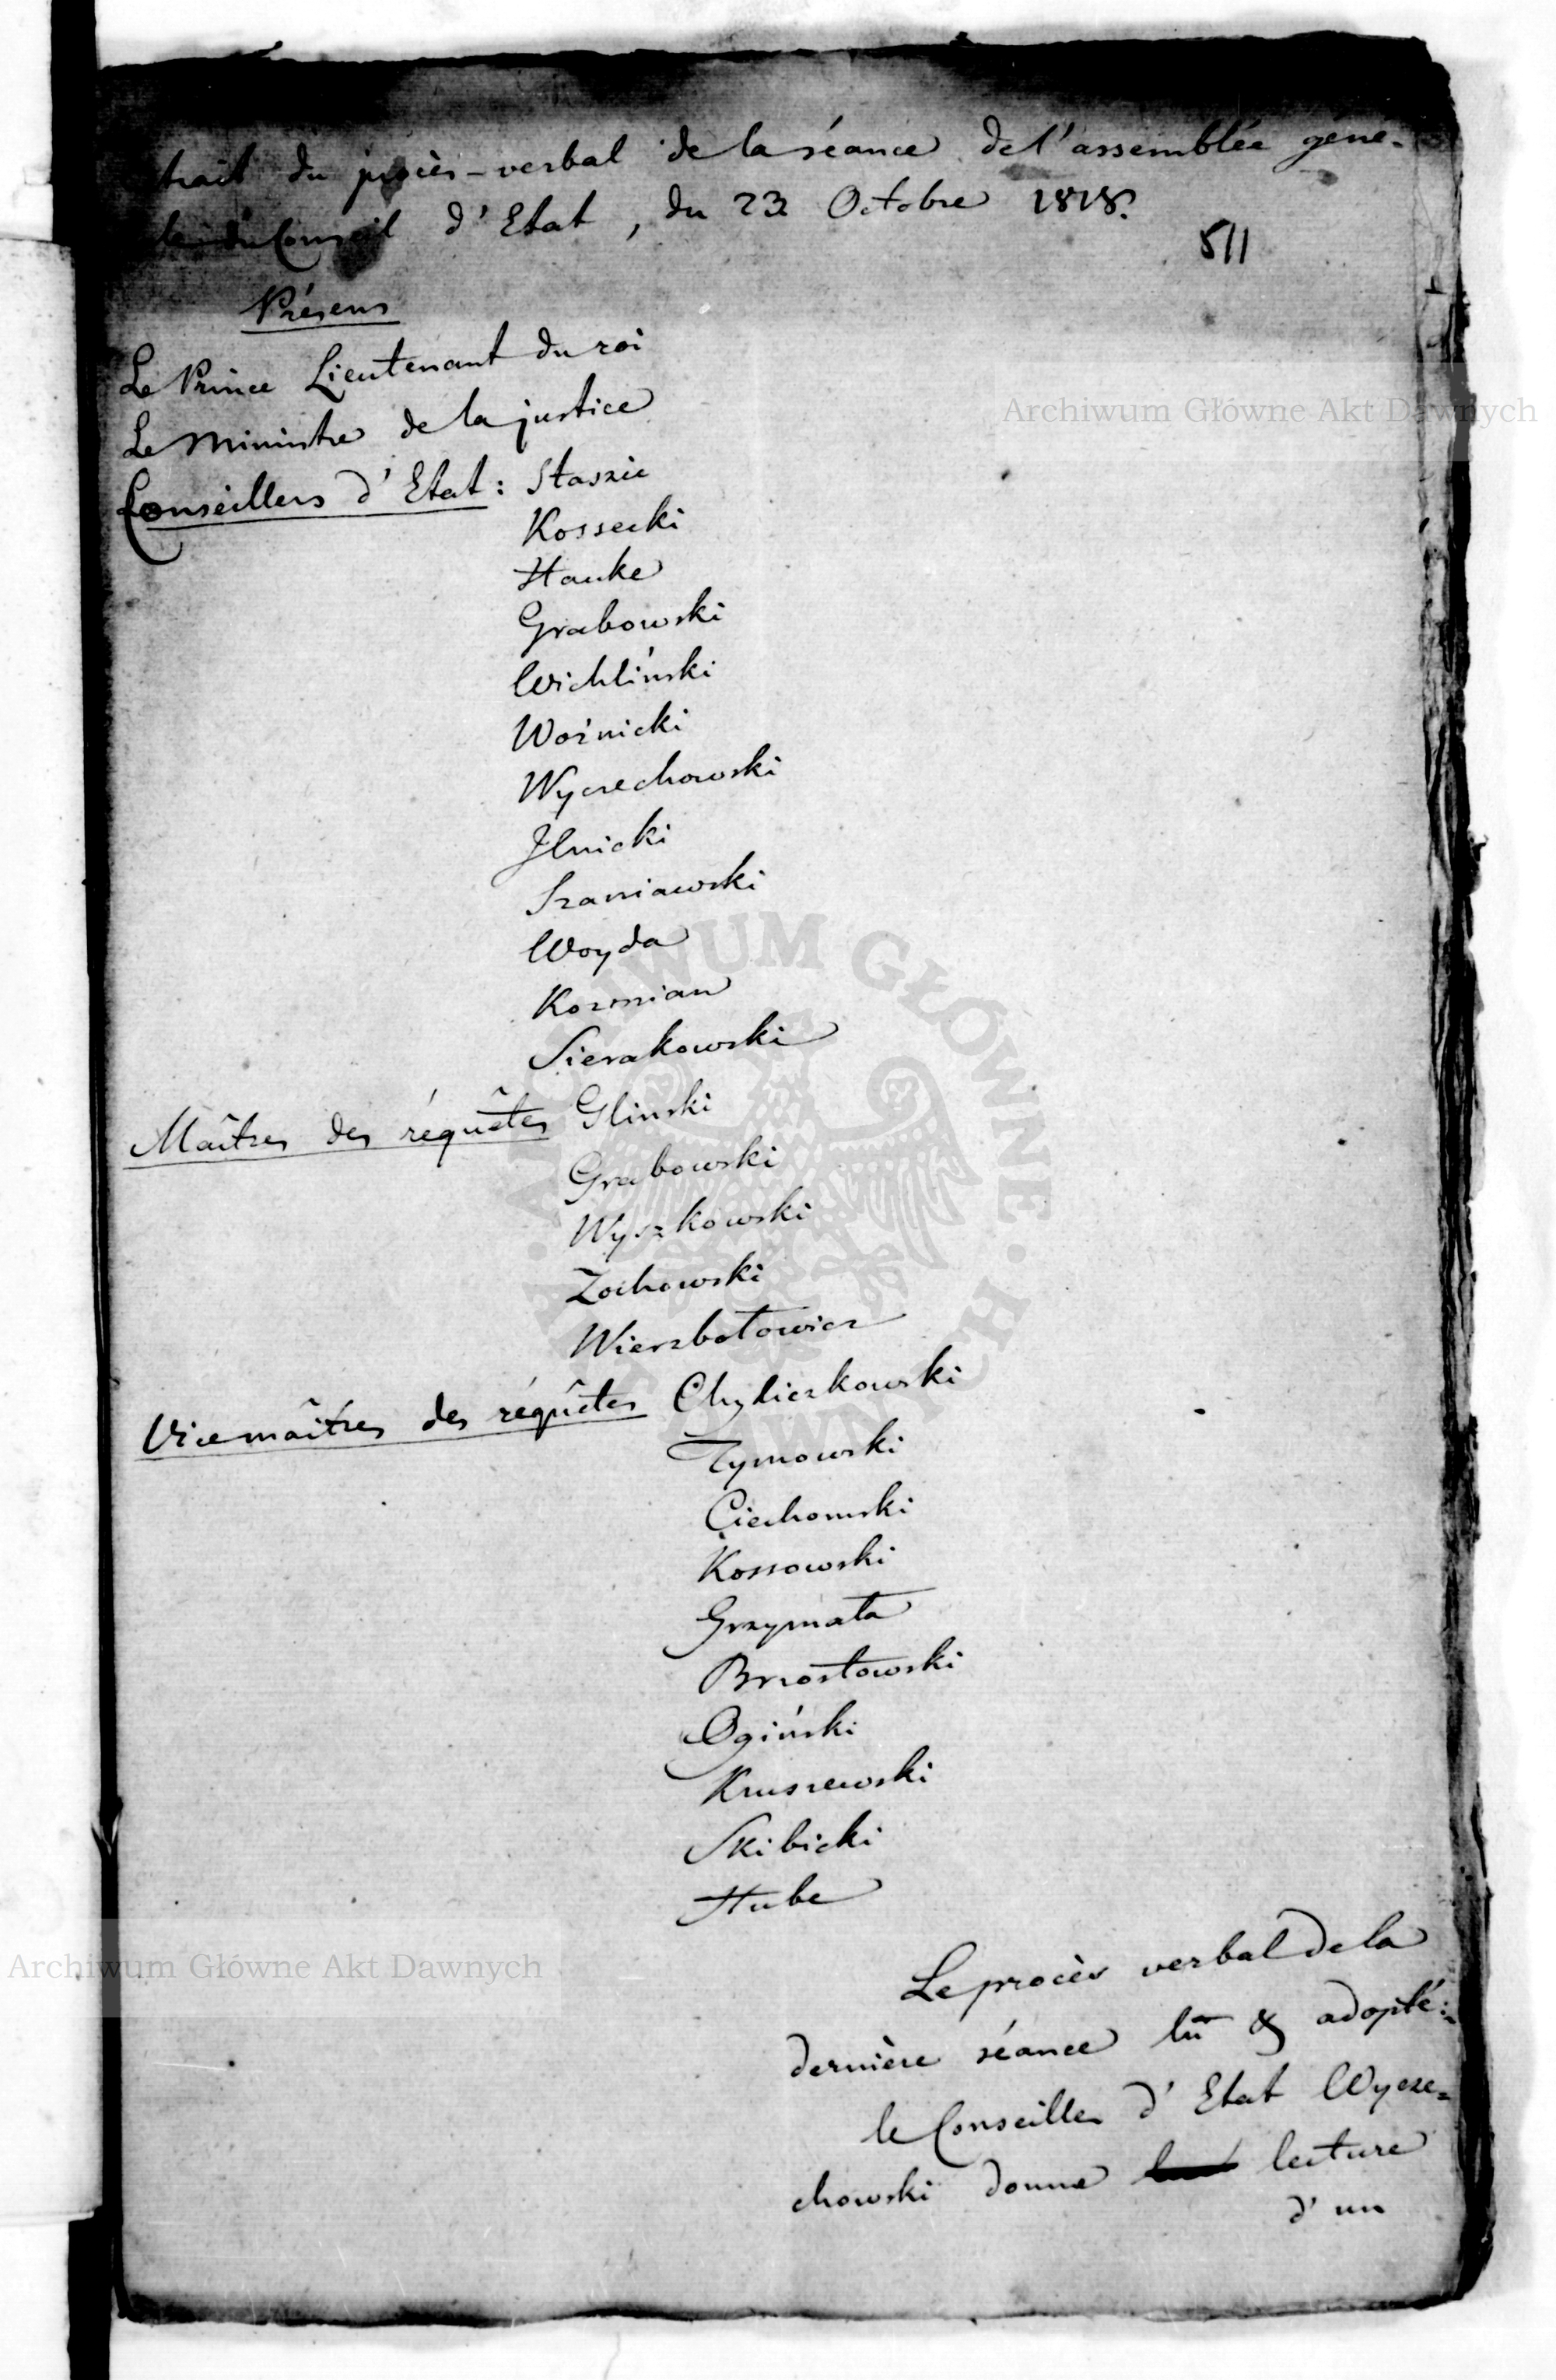 trait du procès-verbal de la séance de l'assemblée géné-
le du Conseil d'Etat, du 23 Octobre 1818.
511
Présens
Le Prince Lieutenant du roi
Le Ministre de la justice
Archiwum Główne Akt Dawnych
Conseillers d'Etat: Staszic
Kossecki
Hauke
Grabowski
Wichliński
Woźnicki
Wyczechowski
Jlnicki
Szaniawski
Woyda
Kozmian
Sierakowski
Maîtres des réquêtes Glinski
Grabowski
Wyszkowski
Zochowski
Wierzbołowicz
ARCHIWUM GŁÓWNE AKT DAWNYCH
Vicemaîtres des réquêtes Chyliczkowski
Tymowski
Ciechomski
Kossowski
Grzymała
Brzostowski
Ogiński
Kruszewski
Skibicki
Hube
Le procès verbal de la
Archiwum Główne Akt Dawnych
dernière séance lu & adopté:
le Conseiller d'Etat Wycze=
chowski donne lecture
d'un